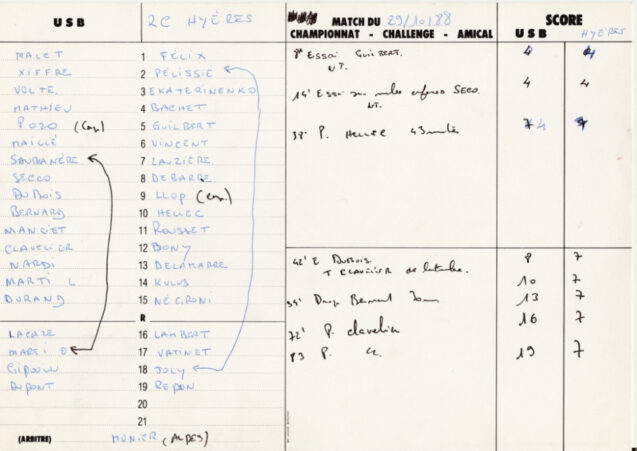 USB 2C HYÈRES
MALET 1 FÉLIX
XIFFRE 2 PÉLISSIÉ
VOLTE 3 EKATERINENKO
MATHIEU 4 BACHET
POZO (Cap.) 5 GUILBERT
MAILLÉ 6 VINCENT
SAUBANÈRE 7 LAUZIÈRE
SECCO 8 DEBARRE
DUBOIS 9 LLOP (Cap.)
BERNARD 10 HELLEC
11 ROUSSET
CLAVELIER 12 BONY
NARDI 13 DELAMARRE
MARTI L 14 KULUS
DURAND 15 NÉGRONI
R
LACAZE 16 LAMBERT
MARTI D 17 VATINET
18 JOLY
DUPONT 19 REPON
20
21
(ARBITRE) MUNIER (ALPES)
MATCH DU 29/10/88
CHAMPIONNAT - CHALLENGE - AMICAL
SCORE
USB HYÈRES
8' Essai GUILBERT. 4
NT.
Essai SECO. 4 4
NT.
38' P. HELLEC 43 4 7
42' E DUBOIS. 8 7
T CLAVELIER de 10 7
Drop Bernard 13 7
72' P. Clavelier 16 7
83 P. 19 7